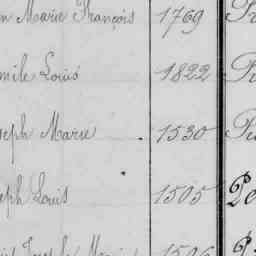 n Marie François 1769
mile Louis 1822
seph Marie 1530
seph Louis 1505